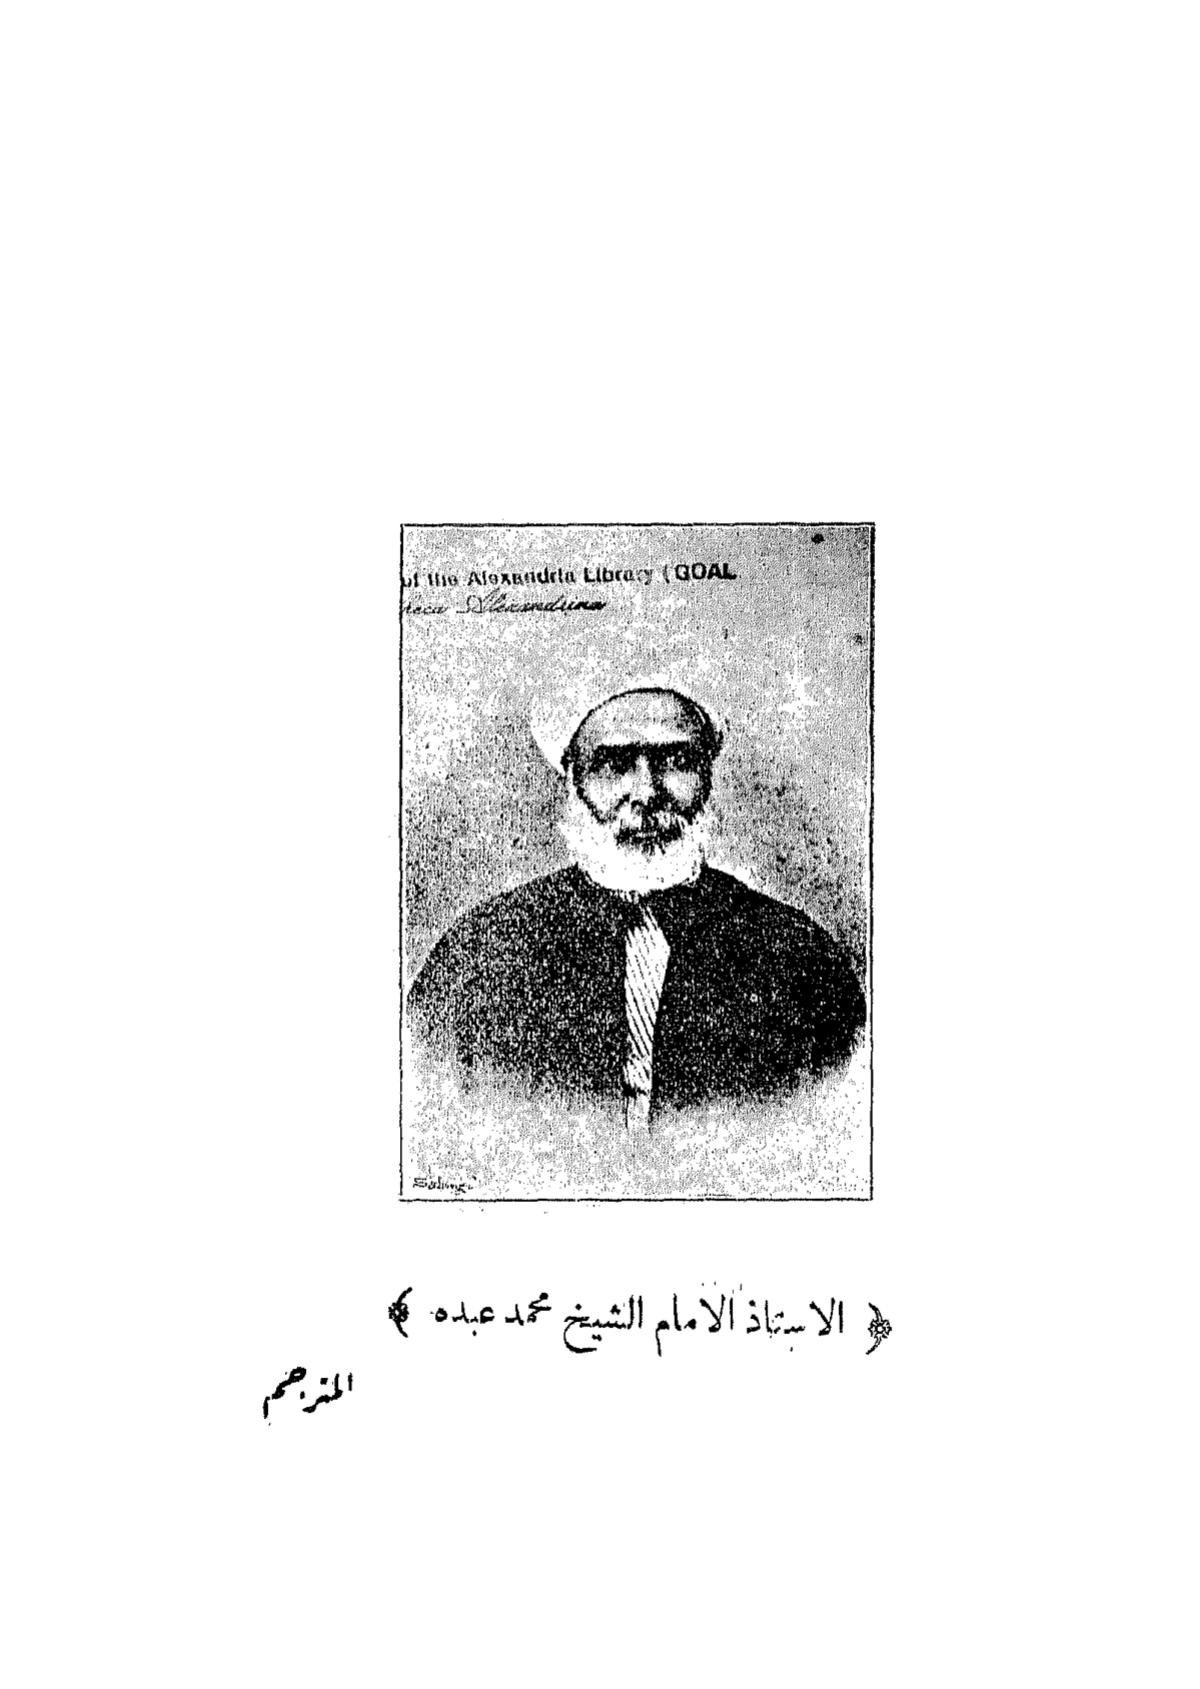 of the Alexandria Library (GOAL
Alexandrina
﴿ الاستاذ الامام الشيخ محمد عبده ﴾
المترجم